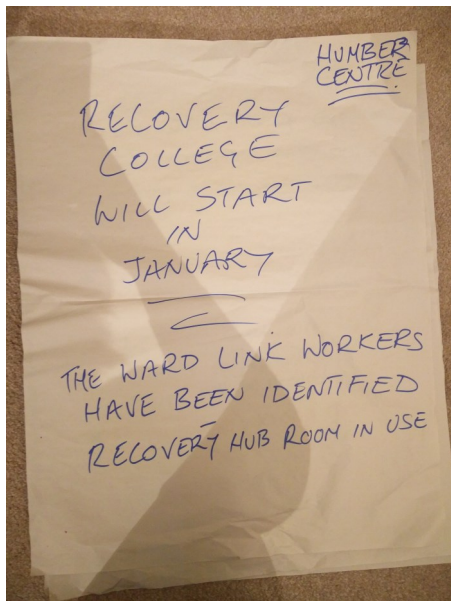 HUMBER
CENTRE
RECOVERY
COLLEGE
WILL START
IN
JANUARY
THE WARD LINK WORKERS
HAVE BEEN IDENTIFIED
RECOVERY HUB ROOM IN USE